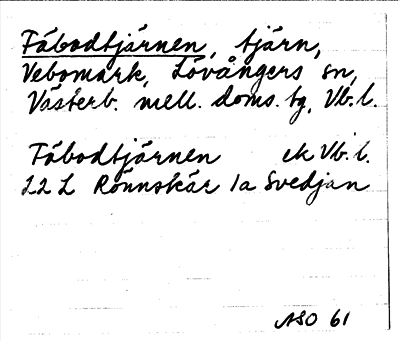 Fäbodtjärnen, tjärn,
Vebomark, Lövångers sn,
Västerb. mell. doms. tg, Vb. l.
Fäbodtjärnen ek Vb. l.
22 L Rönnskär 1a Svedjan
ASO 61